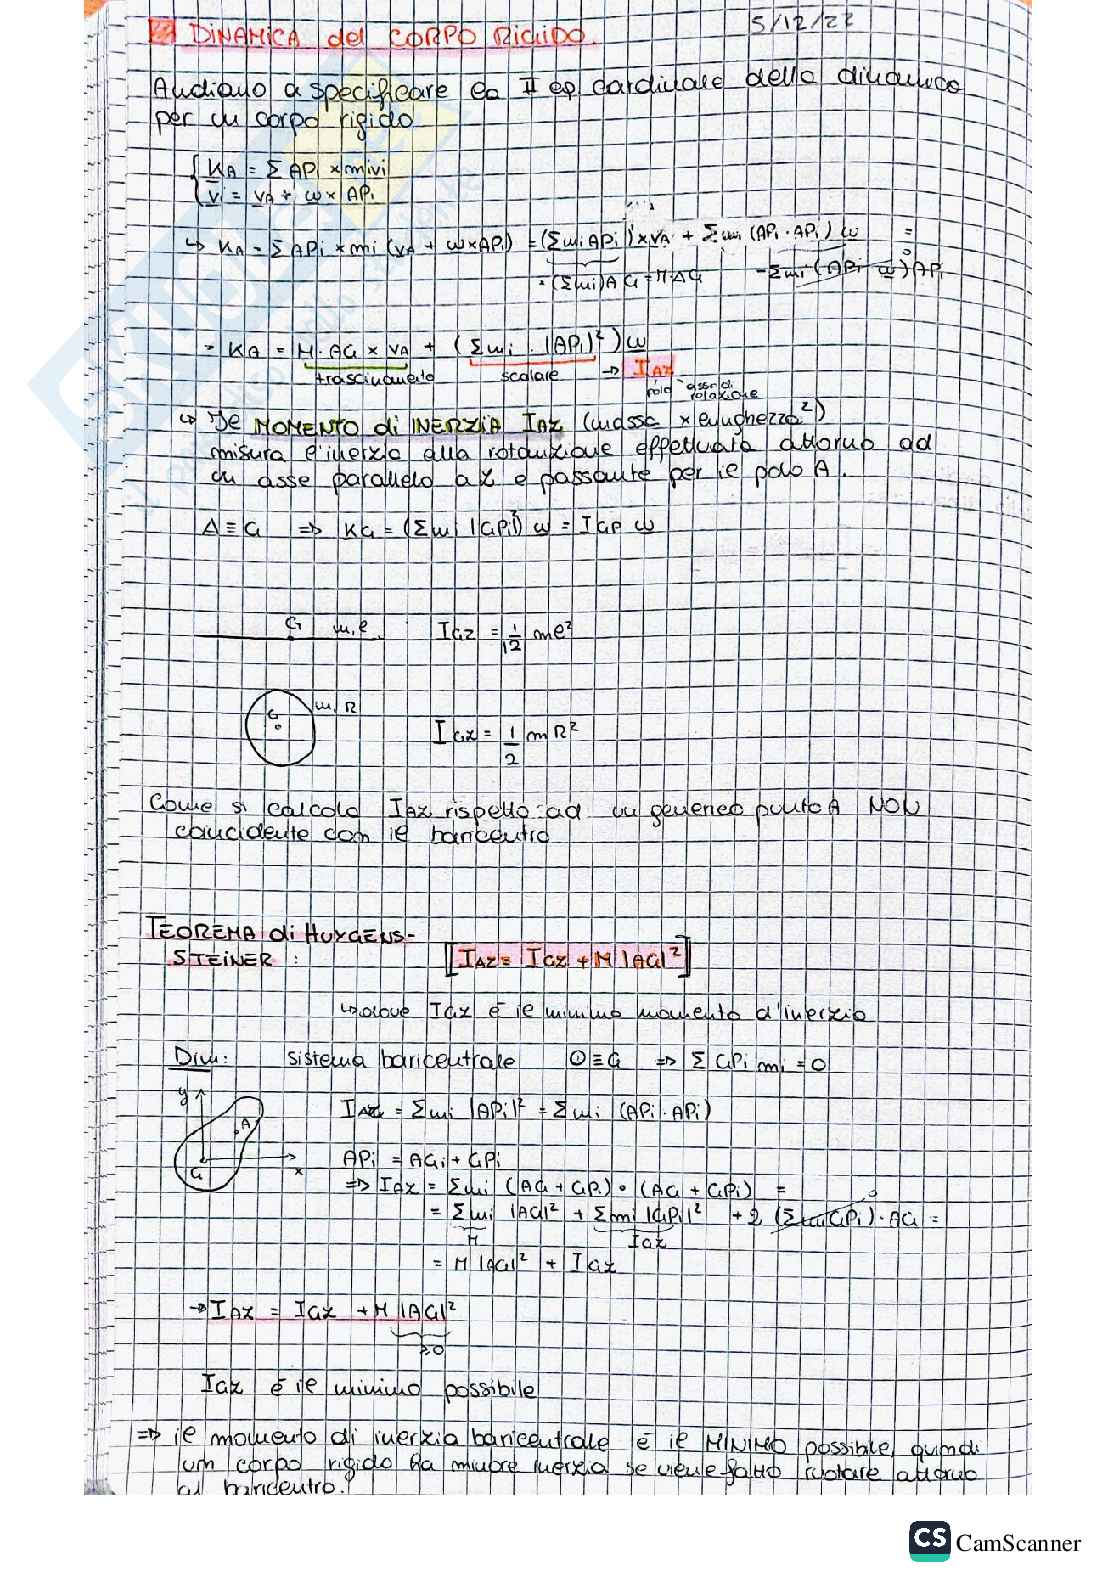 DINAMICA del CORPO RIGIDO. 5/12/22
Andiamo a specificare la II eq cardinale della dinamica
per un corpo rigido
KA = Σ APi × mivi
vi = vA + ω × APi
↳ KA = Σ APi × mi (vA + ω×APi) = (Σmi APi) × vA + Σmi (APi · APi) ω =
= (Σmi) AG = M AG - Σmi (APi · ω) APi 0
= KA = M · AG × vA + (Σmi · |APi|²) ω
trascinamento scalare → IAZ
polo asse di
rotazione
↳ Il MOMENTO di INERZIA IAZ (massa × lunghezza²)
misura l'inerzia alla rotazione effettuata attorno ad
un asse parallelo a z e passante per il polo A.
A ≡ G ⇒ KG = (Σmi |GPi|²) ω = IGP ω
G m, l IGZ = 1/12 ml²
G m, R IGZ = 1/2 mR²
Come si calcola IAZ rispetto ad un generico punto A NON
coincidente con il baricentro
TEOREMA di HUYGENS-
STEINER : [IAZ = IGZ + M |AG|²]
↳ dove IGZ è il minimo momento d'inerzia
Dim: sistema baricentrale O ≡ G ⇒ Σ GPi mi = 0
y A G x
IAZ = Σmi |APi|² = Σmi (APi · APi)
APi = AGi + GPi
⇒ IAZ = Σmi (AG + GPi) · (AG + GPi) =
= Σmi |AG|² + Σmi |GPi|² + 2 (Σmi GPi) · AG = 0
M IGZ
= M |AG|² + IGZ
→ IAZ = IGZ + M |AG|²
≥0
IGZ è il minimo possibile
⇒ il momento di inerzia baricentrale è il MINIMO possibile, quindi
un corpo rigido ha minore inerzia se viene fatto ruotare attorno
al baricentro.
CS CamScanner